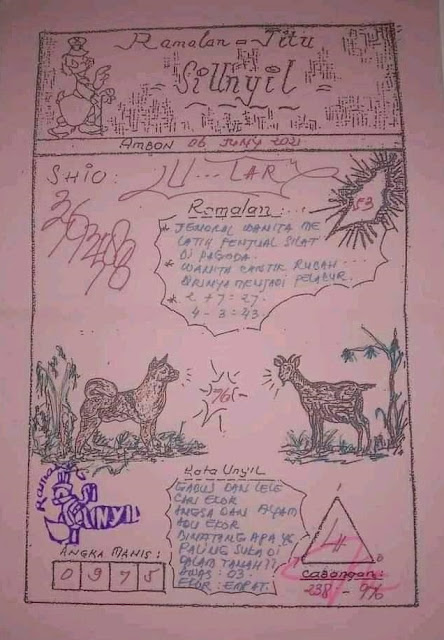 Ramalan = Jitu
Si Unyil
AMBON 06 JUNY 2021
SHIO:
53
Ramalan:
* JENDRAL WANITA ME
LATIH PENJUAL SILAT
DI PAGODA.
* WANITA CANTIK RUBAH
DIRINYA MENJADI PELACUR.
* 2 + 7 = 27.
4 - 3 = 43.
76
Kata Unyil
GABUS DAN LELE
CARI EKOR
ANGSA DAN AYAM
ADU EKOR
BINATANG APA YG
PALING SUKA DI
DALAM TANAH??
AWAS : 03.
EKOR : EMPAT.
SI
UNYIL
ANGKA MANIS:
0 9 7 5
Cabangan:
238 - 976